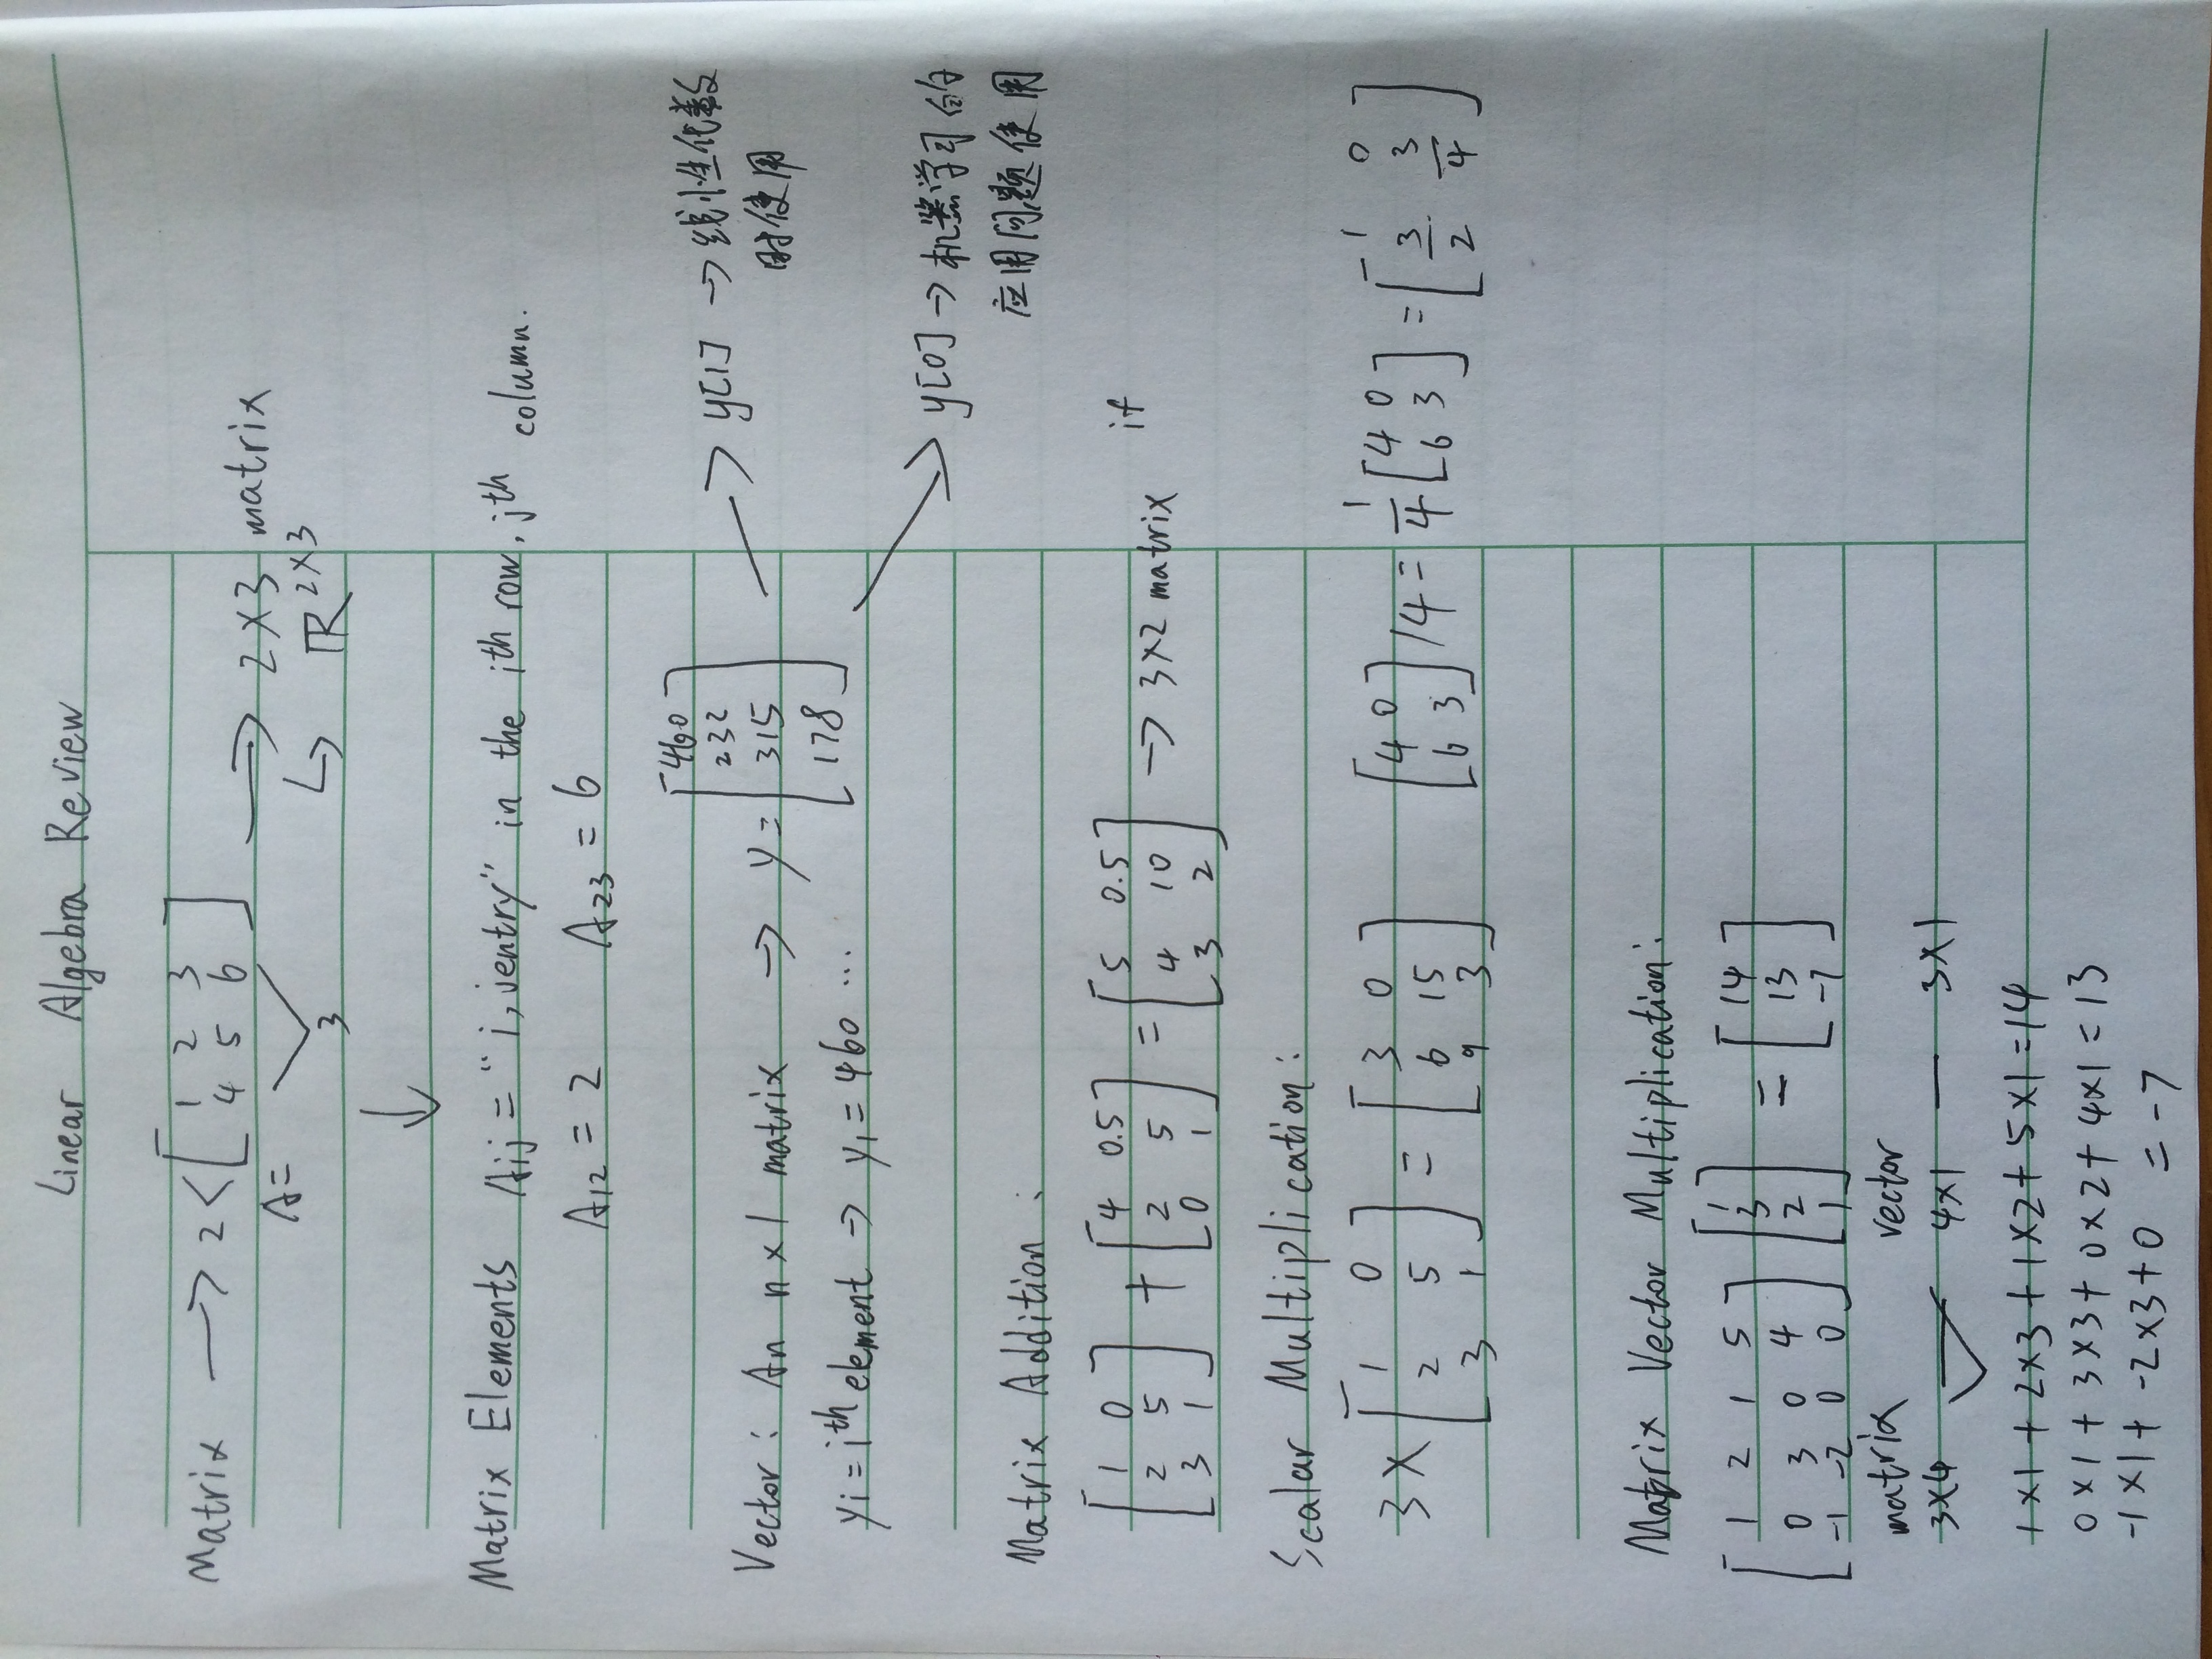 Linear Algebra Review
Matrix → 2 < [ 1 2 3
4 5 6 ]
A =
3
→ 2×3 matrix
↳ ℝ^{2×3}
↓
Matrix Elements Aij = "i, jentry" in the ith row, jth column.
A12 = 2 A23 = 6
Vector: An n×1 matrix → y = [ 460
232
315
178 ]
yi = ith element → y1 = 460 ...
y[1] → 线性代数
时使用
y[0] → 机器学习的
应用问题使用
Matrix Addition :
[ 1 0
2 5
3 1 ] + [ 4 0.5
2 5
0 1 ] = [ 5 0.5
4 10
3 2 ] → 3×2 matrix if
Scalar Multiplication:
3 × [ 1 0
2 5
3 1 ] = [ 3 0
6 15
9 3 ]
[ 4 0
6 3 ] / 4 = 1/4 [ 4 0
6 3 ] = [ 1 0
3/2 3/4 ]
Matrix Vector Multiplication:
[ 1 2 1 5
0 3 0 4
-1 -2 0 0 ] [ 1
3
2
1 ] = [ 14
13
-7 ]
matrix vector
3×4 4×1 — 3×1
1×1 + 2×3 + 1×2 + 5×1 = 14
0×1 + 3×3 + 0×2 + 4×1 = 13
-1×1 + -2×3 + 0 = -7